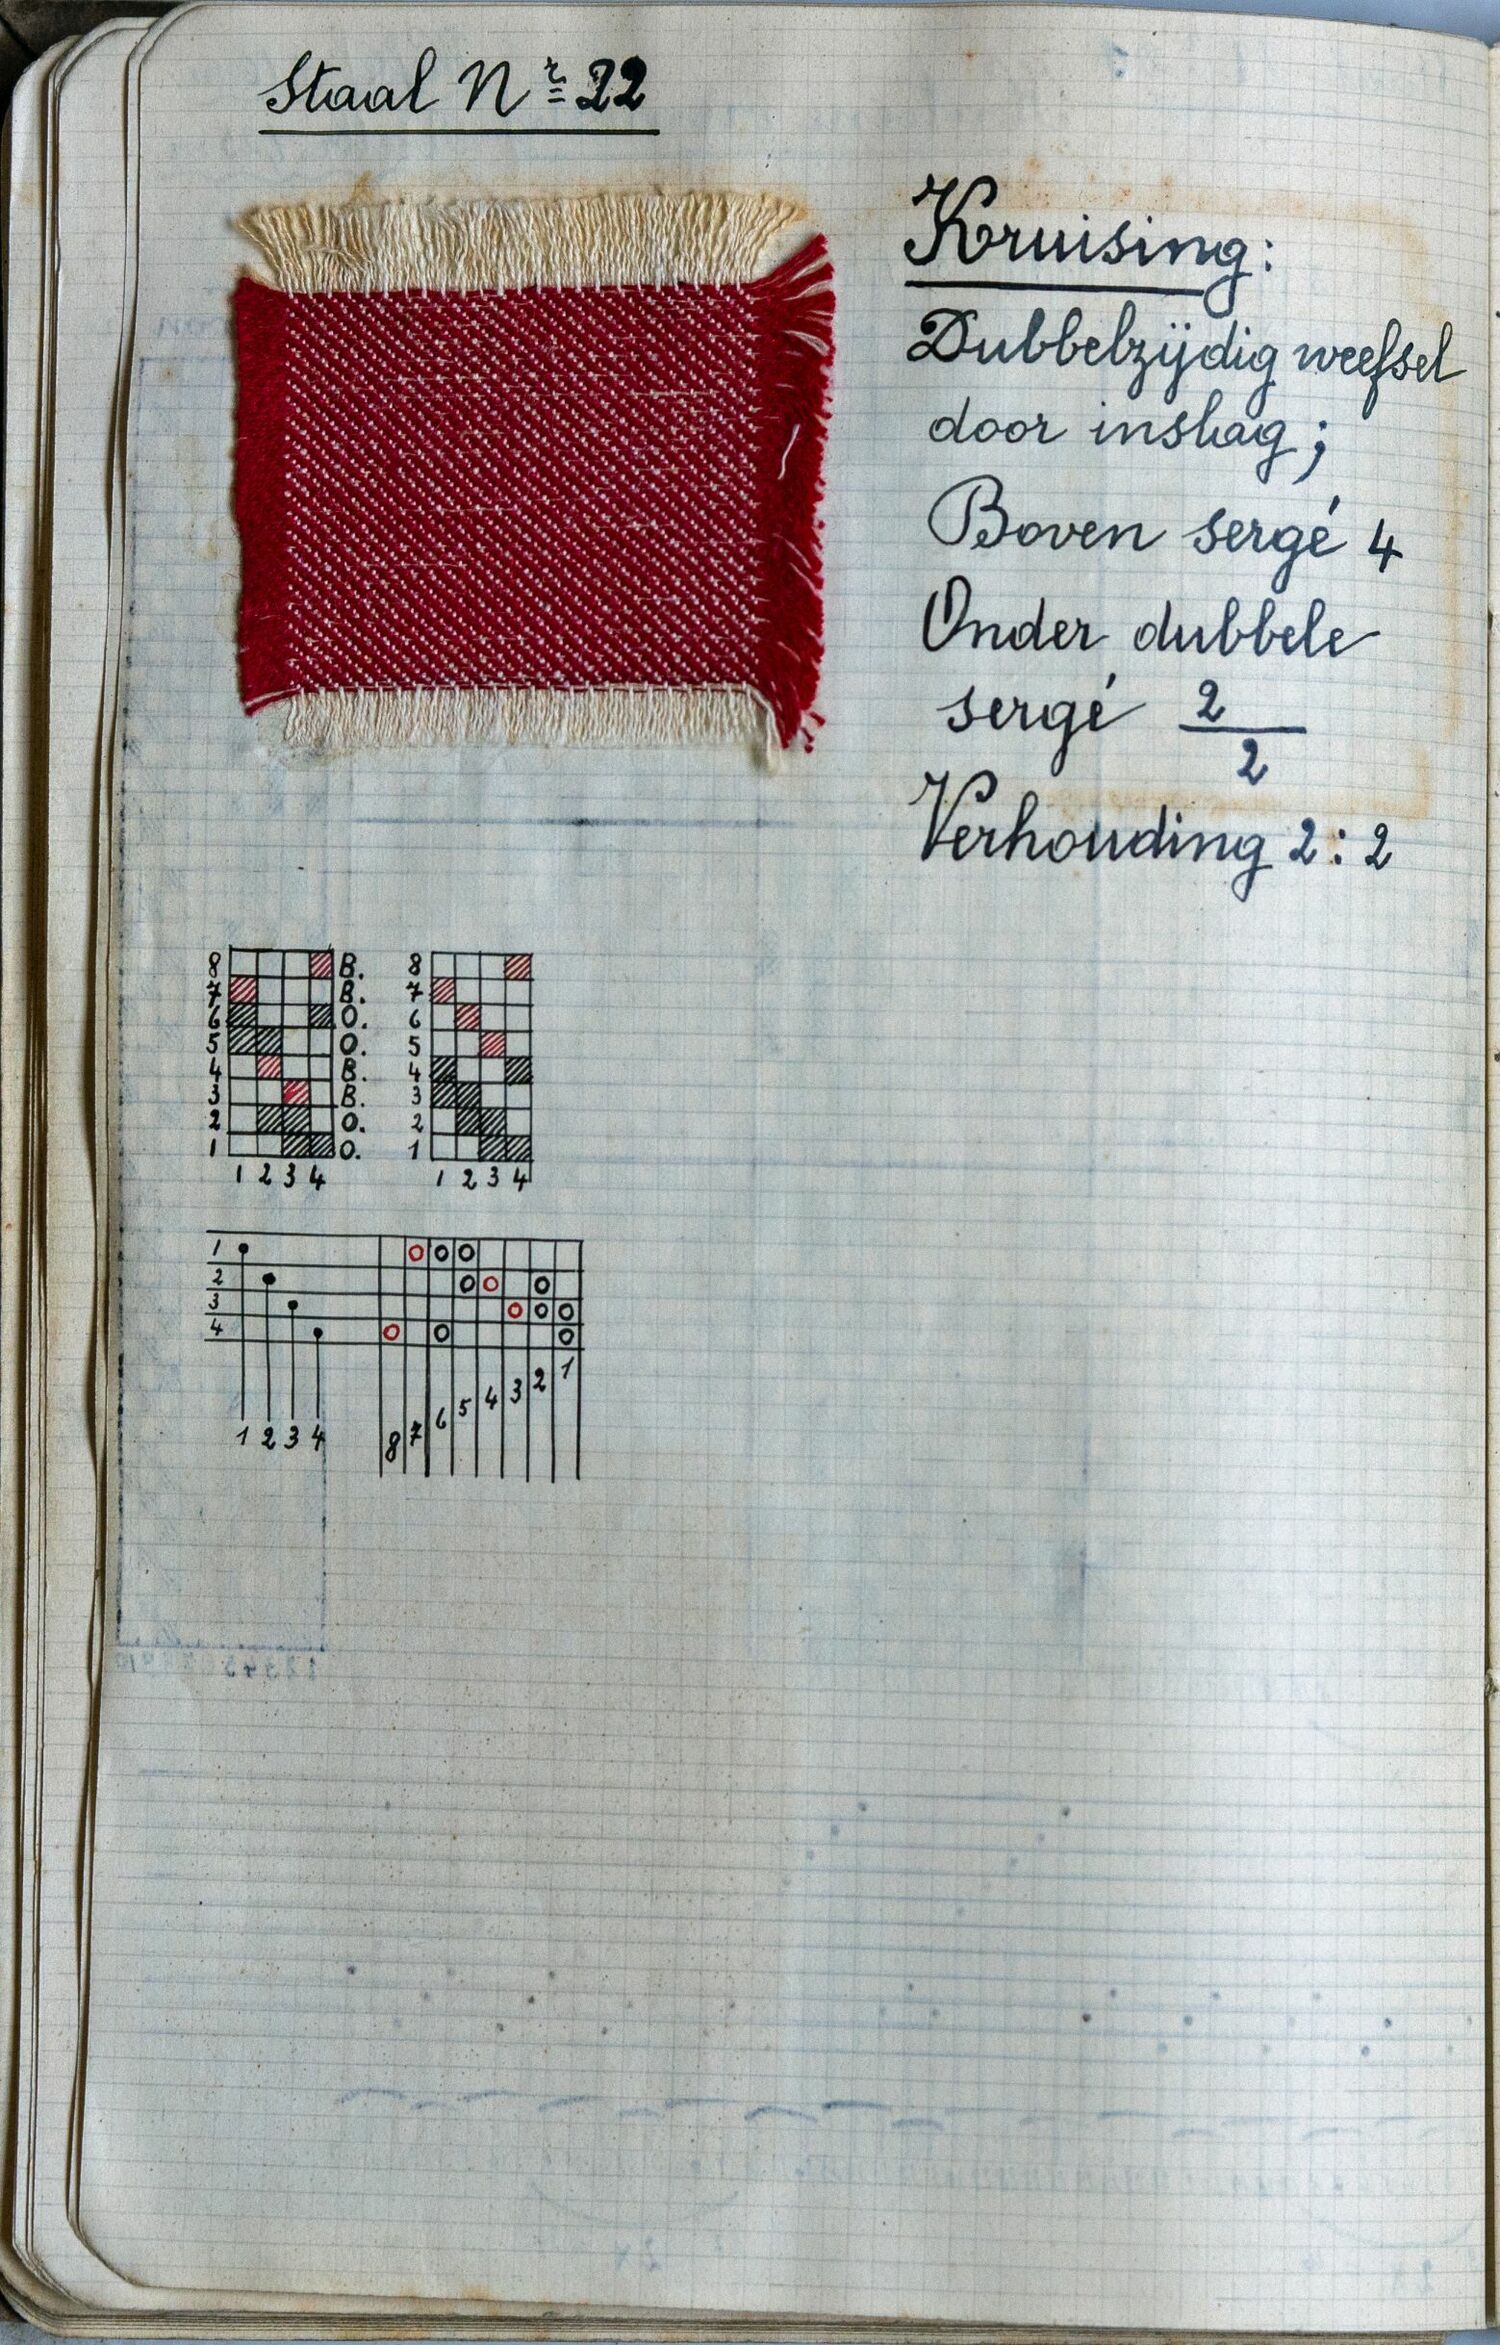 Staal Nr 22
Kruising:
Dubbelzijdig weefsel
door inslag;
Boven sergé 4
Onder dubbele
sergé 2
2
Verhouding 2:2
8 B. 8
7 B. 7
6 O. 6
5 O. 5
4 B. 4
3 B. 3
2 O. 2
1 O. 1
1 2 3 4 1 2 3 4
1
2
3
4
1 2 3 4 8 7 6 5 4 3 2 1